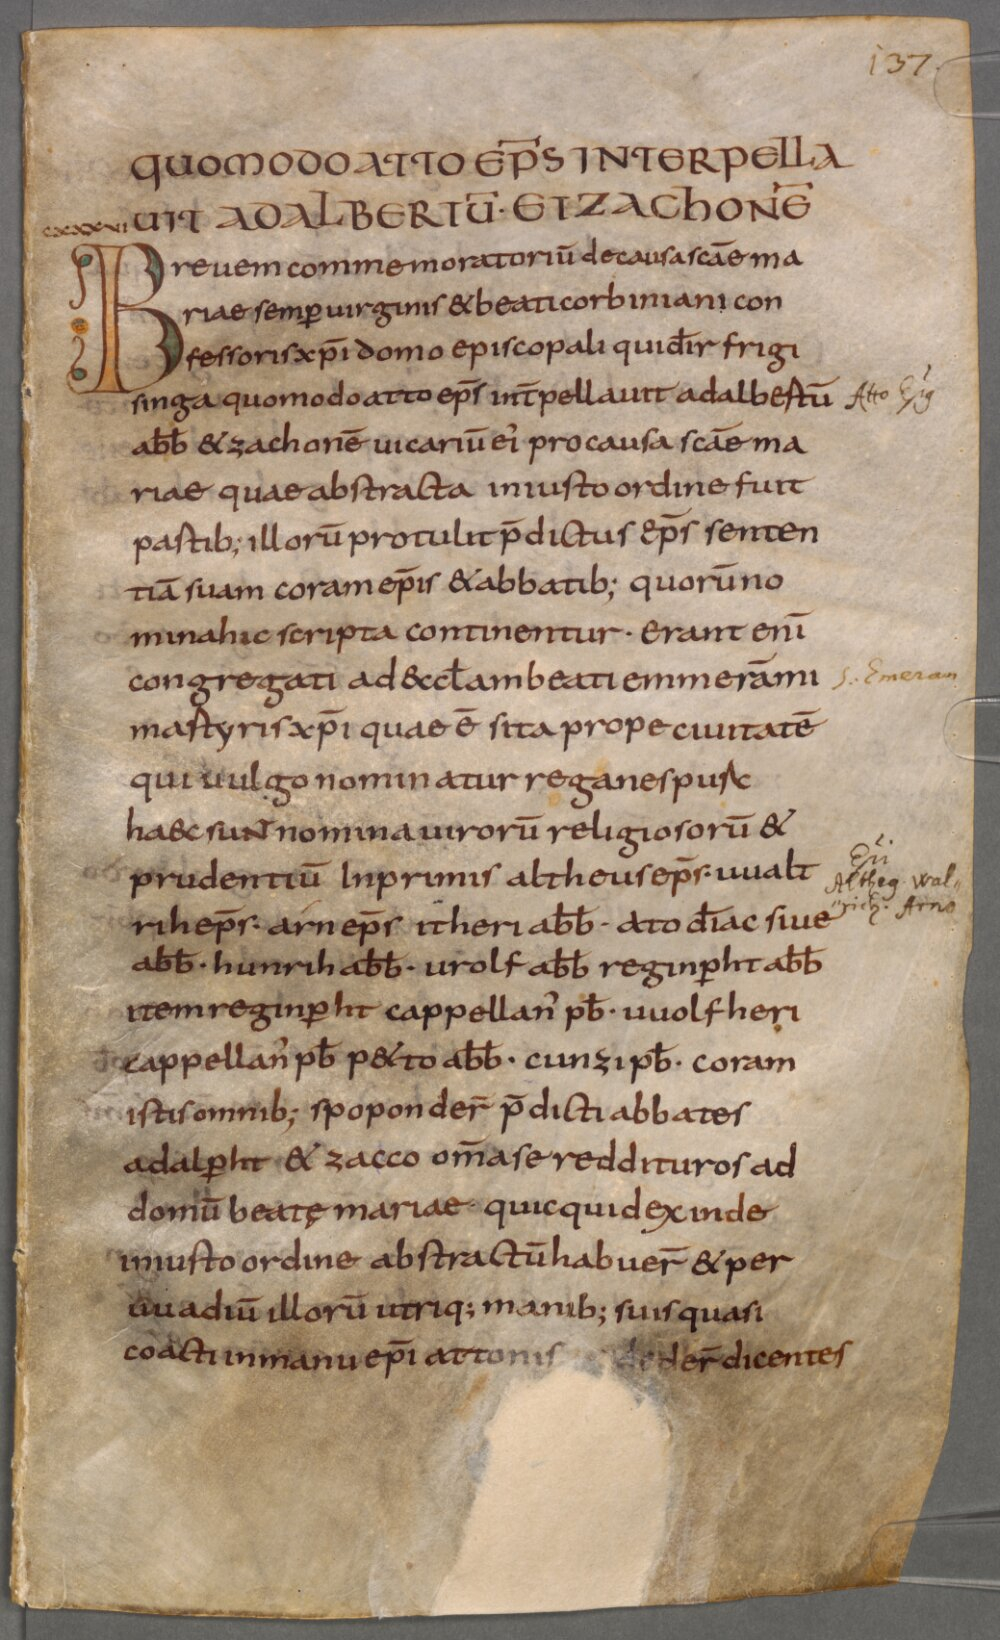 137.
QUOMODO ATTO EP̄S INTERPELLA
UIT ADALBERTŪ· ET ZACHONĒ
cxxxxvi
Breuem commemoratoriū de causa scāe ma
riae semp uirginis & beati corbiniani con
fessoris xp̄i domo episcopali qui dir̄ frigi
singa quomodo atto ep̄s int̄pellauit adalbertū
abb̄ & zachonē uicariū ei' pro causa scāe ma
riae quae abstracta iniusto ordine fuit
partib; illorū protulit p̄dictus ep̄s senten
tiā suam coram ep̄is & abbatib; quorū no
mina hic scripta continentur· erant enī
congregati ad &ccl̄am beati emmerāmi
martyris xp̄i quae ē sita prope ciuitatē
qui uulgo nominatur reganespurc
haec sunt nomina uirorū religiosorū &
prudentiū Inprimis altheus ep̄s· uualt
rih ep̄s· arn ep̄s itheri abb̄· ato diac̄ siue
abb̄· hunrih abb̄· urolf abb̄ reginpht abb̄
item reginpht cappellan' pb̄· uuolfheri
cappellan' pb̄ p&to abb̄· cunzi pb̄· coram
istis omnib; spoponder̄ p̄dicti abbates
adalpht & zacco om̄a se reddituros ad
domū beatę mariae· quicquid exinde
iniusto ordine abstractū habuer̄ & per
uuadiū illorū utriq; manib; suis quasi
coacti in manu ep̄i attonis deder̄ dicentes
Atto Ep̄g
S. Emeran
Ep̄i
Altheg. Wal„
„rich. Arno